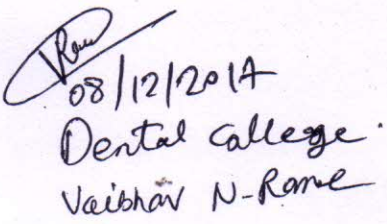 08/12/2017
Dental College.
Vaibhav N-Rame